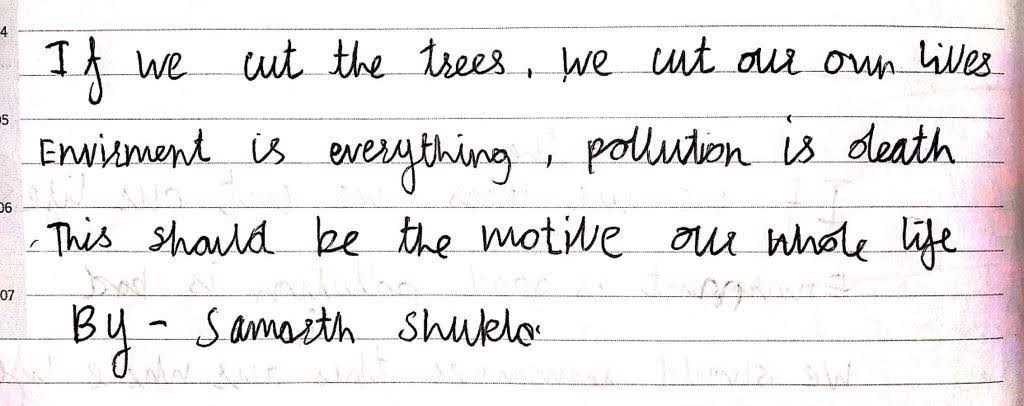 If we cut the trees, we cut our own lives
Envirment is everything, pollution is death
This should be the motive our whole life
By - Samarth Shukla